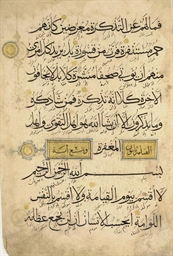 فما لهم عن التذكرة معرضين كأنهم
حمر مستنفرة فرت من قسورة بل يريد كل امرئ
منهم أن يؤتى صحفا منشرة كلا بل لا يخافون
الآخرة كلا إنه تذكرة فمن شاء ذكره
وما يذكرون إلا أن يشاء الله هو أهل التقوى وأهل
المغفرة
بسم الله الرحمن الرحيم
لا أقسم بيوم القيامة ولا أقسم بالنفس
اللوامة أيحسب الإنسان ألن نجمع عظامه